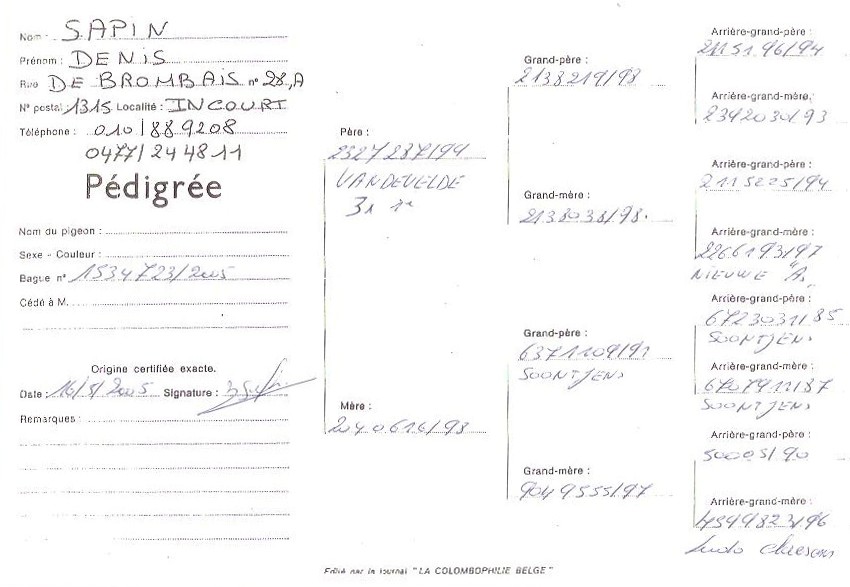 Nom : SAPIN
Prénom : DENIS
Rue DE BROMBAIS n° 28,A
N° postal : 1315 Localité : INCOURT
Téléphone : 010/889208
0477/244811
Pédigrée
Nom du pigeon :
Sexe - Couleur :
Bague n° 1534723/2005
Cédé à M.
Origine certifiée exacte.
Date : 16/5/2005 Signature :
Remarques :
Père :
2327287/99
VANDEVELDE
Mère :
2040616/98
Grand-père :
2138219/98
Grand-mère :
2138038/98.
Grand-père :
6371109/91
SOONTJENS
Grand-mère :
9049555/97
Arrière-grand-père :
2115196/94
Arrière-grand-mère.
2342030/93
Arrière-grand-père :
2115225/94
Arrière-grand-mère :
2266193/97
NIEUWE "A,
Arrière-grand-père :
6723031/85
SOONTJENS
Arrière-grand-mère :
6707911/87
SOONTJENS
Arrière-grand-père :
50005/90
Arrière-grand-mère :
4549823/96
Ludo Claesens
Edité par le journal "LA COLOMBOPHILIE BELGE"